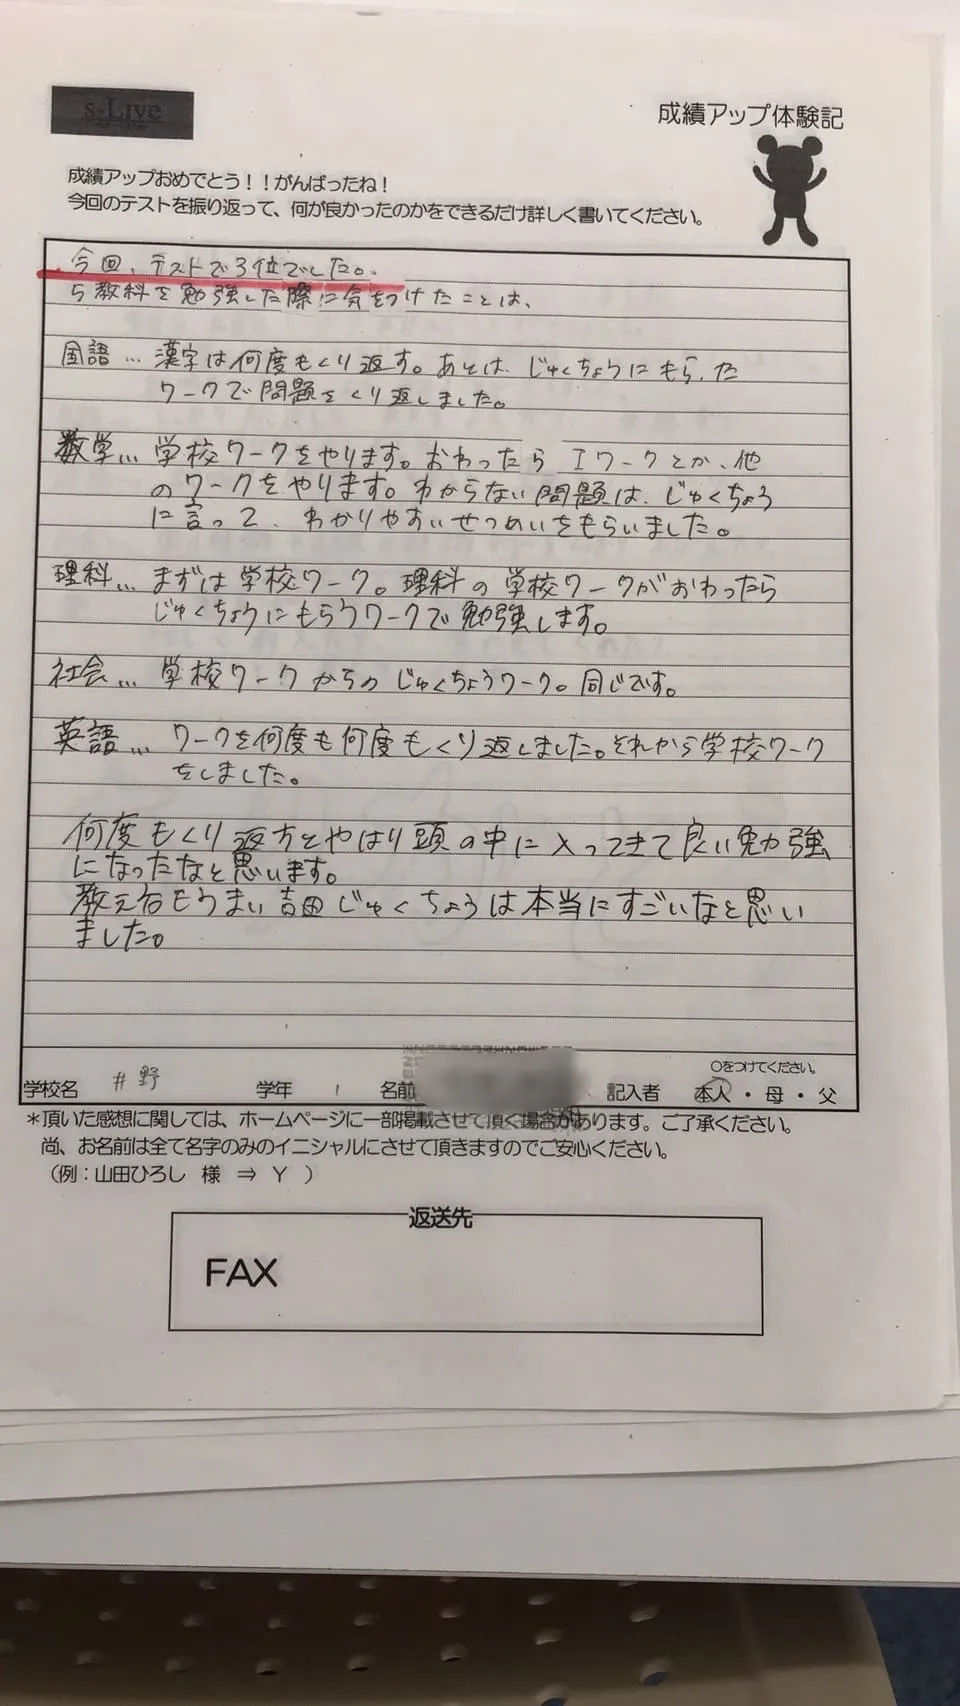 s-Live
成績アップ体験記
成績アップおめでとう！！がんばったね！
今回のテストを振り返って、何が良かったのかをできるだけ詳しく書いてください。
今回、テストで3位でした。
5教科を勉強した際に気をつけたことは、
国語… 漢字は何度もくり返す。あとは、じゅくちょうにもらった
ワークで問題をくり返しました。
数学… 学校ワークをやります。おわったら Iワークとか、他
のワークをやります。わからない問題は、じゅくちょう
に言って、わかりやすいせつめいをもらいました。
理科… まずは学校ワーク。理科の学校ワークがおわったら
じゅくちょうにもらうワークで勉強します。
社会… 学校ワークからのじゅくちょうワーク。同じです。
英語… ワークを何度も何度もくり返しました。それから学校ワーク
をしました。
何度もくり返すとやはり頭の中に入ってきて良い勉強
になったなと思います。
教え方もうまい吉田じゅくちょうは本当にすごいなと思い
ました。
○をつけてください。
学校名 井野 学年 1 名前 記入者 本人・母・父
＊頂いた感想に関しては、ホームページに一部掲載させて頂く場合があります。ご了承ください。
尚、お名前は全て名字のみのイニシャルにさせて頂きますのでご安心ください。
（例：山田ひろし 様 ⇒ Y ）
返送先
FAX